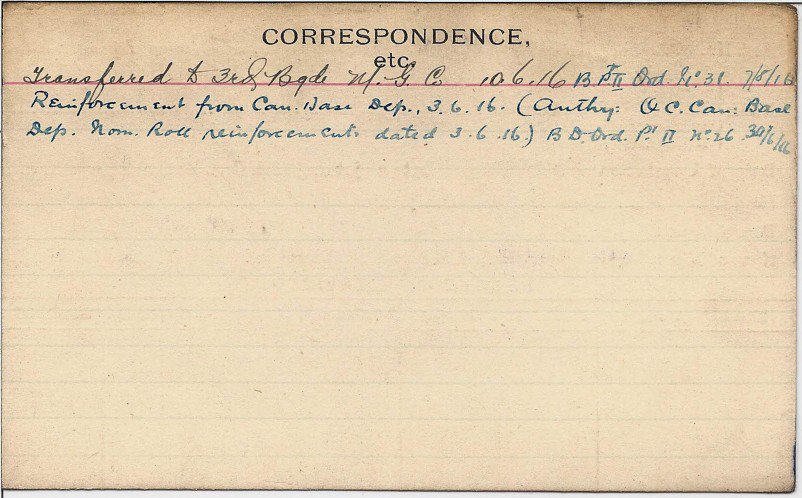 CORRESPONDENCE,
etc.
Transferred to 3rd Bgde M. G. Co 10.6.16 B. Pt II Ord. No. 31. 7/8/16
Reinforcement from Can. Base Dep., 3.6.16. (Authy: O C. Can: Base
Dep. Nom. Roll reinforcements dated 3.6.16) B D. Ord. Pt II No 26 30/6/16